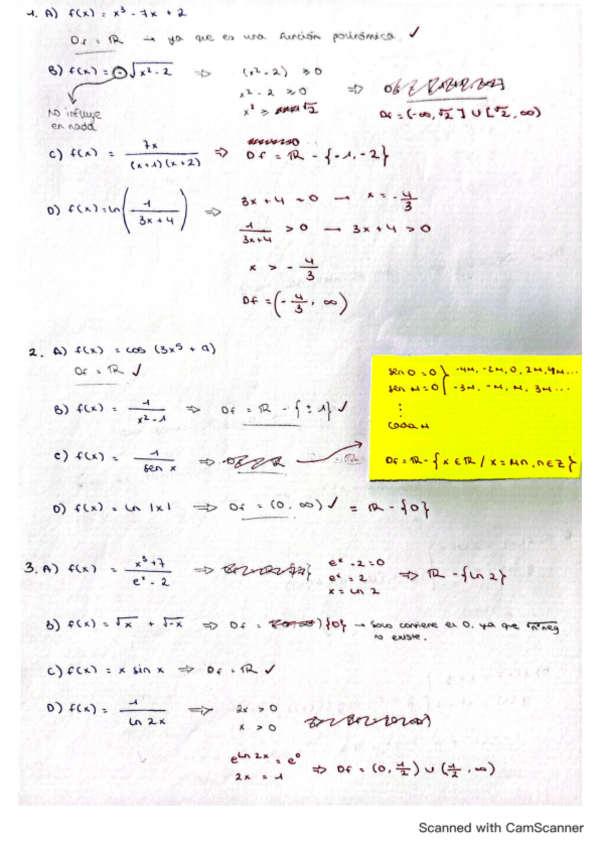 1. A) f(x) = x³ - 7x + 2
Df = ℝ → ya que es una función polinómica. ✓
B) f(x) = -√(x² - 2) ⇒ (x² - 2) ≥ 0
x² - 2 ≥ 0 ⇒ Df
x² ≥ √2 Df = (-∞, √2] ∪ [√2, ∞)
No influye
en nada
C) f(x) = 7x / (x+1)(x+2) ⇒ Df = ℝ - {-1, -2}
D) f(x) = ln(1 / 3x+4) ⇒ 3x + 4 = 0 → x = -4/3
1 / 3x+4 > 0 → 3x + 4 > 0
x > -4/3
Df = (-4/3, ∞)
2. A) f(x) = cos (3x⁵ + 9)
Df = ℝ ✓
B) f(x) = 1 / x² - 1 ⇒ Df = ℝ - {±1} ✓
C) f(x) = 1 / sen x ⇒
sen 0 = 0 } -4π, -2π, 0, 2π, 4π...
sen π = 0 } -3π, -π, π, 3π...
⋮
cada π
Df = ℝ - {x ∈ ℝ / x = πn, n ∈ Z}
D) f(x) = ln |x| ⇒ Df = (0, ∞) ✓ = ℝ - {0}
3. A) f(x) = x³ + 7 / eˣ - 2 ⇒ eˣ - 2 = 0
eˣ = 2 ⇒ ℝ - {ln 2}
x = ln 2
B) f(x) = √x + √-x ⇒ Df = {0} → Solo contiene el 0, ya que √nº neg
no existe.
C) f(x) = x sin x ⇒ Df = ℝ ✓
D) f(x) = 1 / ln 2x ⇒ 2x > 0
x > 0
e^(ln 2x) = e⁰
2x = 1 ⇒ Df = (0, 1/2) ∪ (1/2, ∞)
Scanned with CamScanner